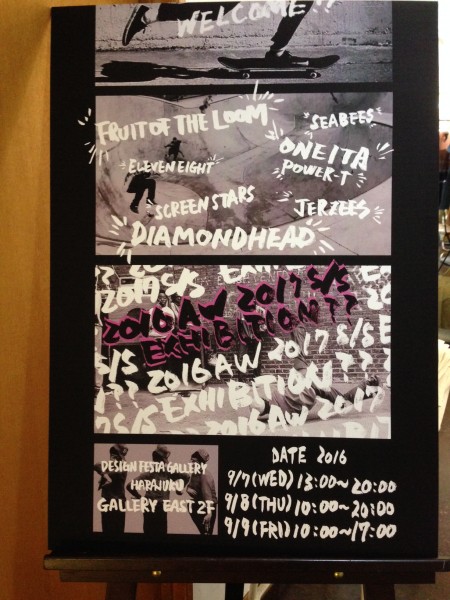 WELCOME!!
FRUIT OF THE LOOM
SEABEES
ELEVEN EIGHT
ONEITA
POWER-T
SCREEN STARS
JERZEES
DIAMONDHEAD
EXHI
2017 S/S
2016 AW 2017 S/S
EXHIBITION??
S/S
S/S EXHIBITION
?? 2016 AW 2017 S/S
EXHIBITION??
S/S 2016 AW 2017
DESIGN FESTA GALLERY
HARAJUKU
GALLERY EAST 2F
DATE 2016
9/7(WED) 13:00~20:00
9/8(THU) 10:00~20:00
9/9(FRI) 10:00~17:00